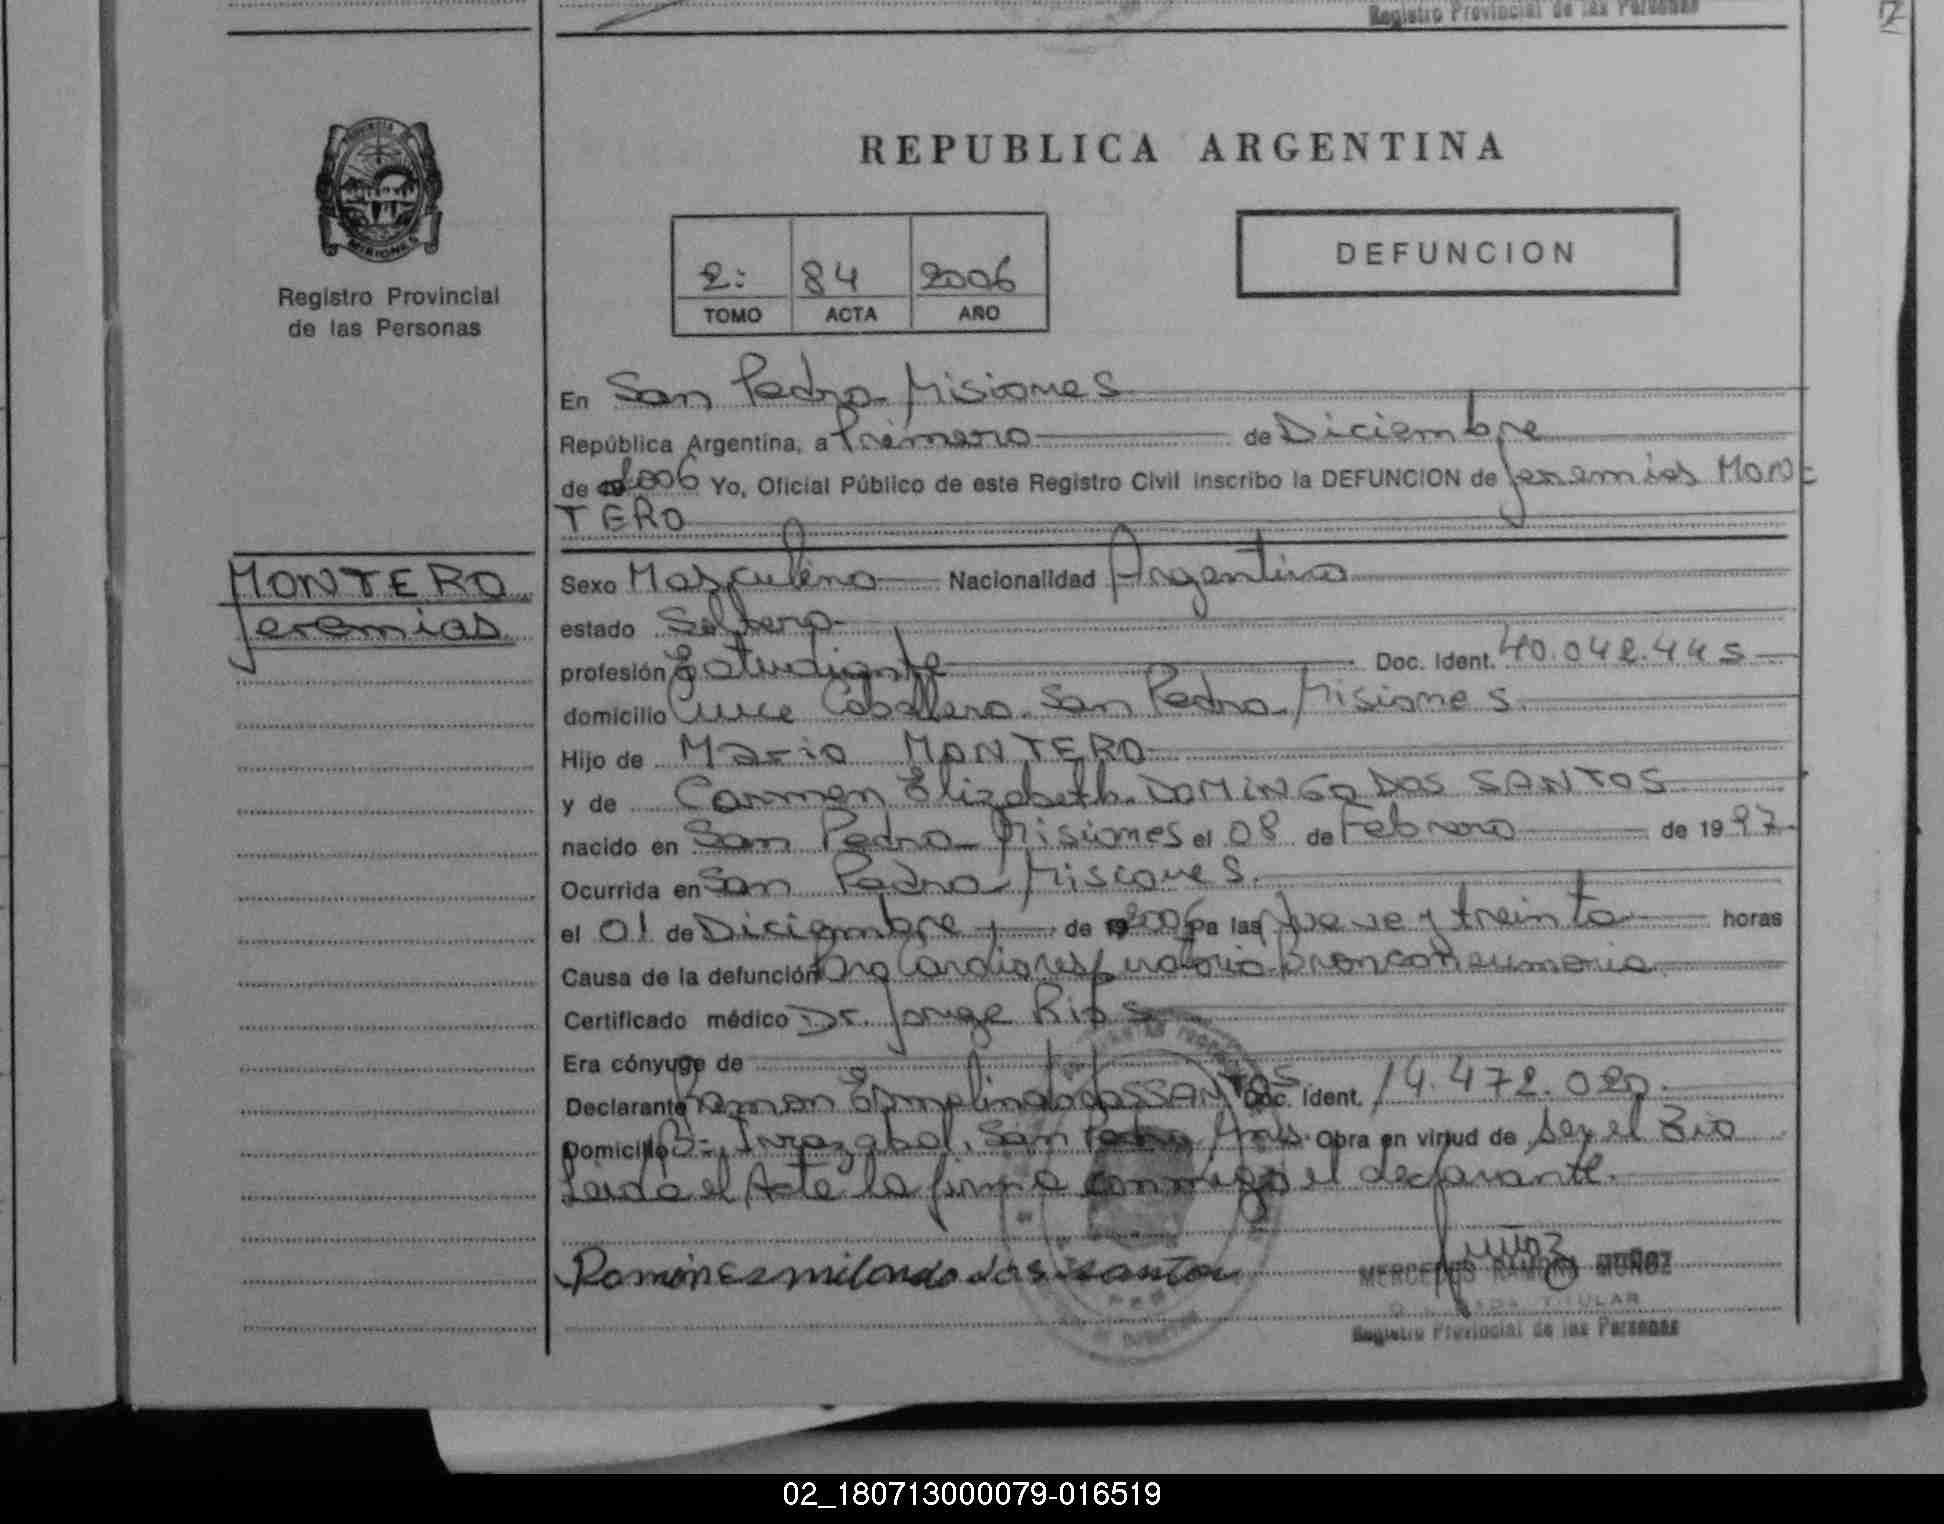 Registro Provincial de las Personas
MISIONES
Registro Provincial
de las Personas
REPUBLICA ARGENTINA
2: 84 2006
TOMO ACTA AÑO
DEFUNCION
En San Pedro Misiones
República Argentina, a Primero de Diciembre
de 2006 Yo, Oficial Público de este Registro Civil inscribo la DEFUNCION de Jeremias MON-
TERO
MONTERO
Jeremias
Sexo Masculino Nacionalidad Argentina
estado Soltero
profesión Estudiante Doc. Ident. 40.042.445
domicilio Cruce Caballero. San Pedro Misiones.
Hijo de Mario MONTERO
y de Carmen Elizabeth DOMINGO DOS SANTOS
nacido en San Pedro Misiones el 08 de Febrero de 1997
Ocurrida en San Pedro Misiones.
el 01 de Diciembre de 2006 a las Nueve y treinta horas
Causa de la defunción Paro Cardiorespiratorio bronconeumonia
Certificado médico Dr. Jorge Rios
Era cónyuge de
Declarante Ramon DOS SANTOS Doc. Ident. 14.472.020
Domicilio B- Irrazabal, San Pedro Mns. Obra en virtud de Ser el Tio
Leida el Acta la firma conmigo el declarante.
Ramon dos santos
Muñoz
MERCEDES RAMONA MUÑOZ
TITULAR
Registro Provincial de las Personas
02_180713000079-016519